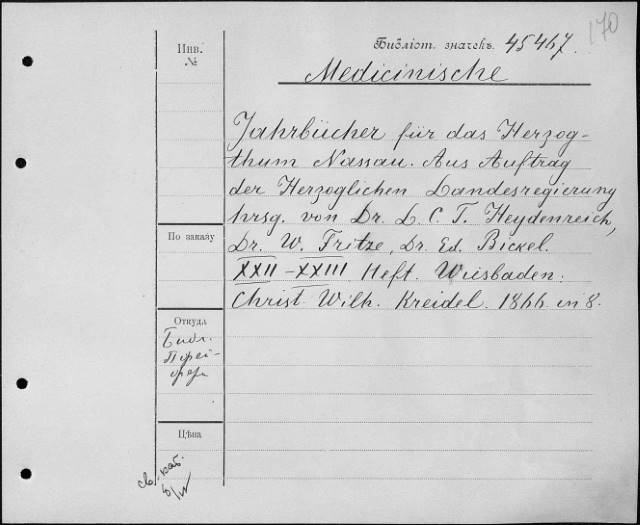 170
Библіот. значекъ 45467.
Инв.
№
Medicinische
Jahrbücher für das Herzog-
thum Nassau. Aus Auftrag
der Herzoglichen Landesregierung
hrsg. von Dr. L. C. T. Heydenreich,
По заказу
Dr. W. Fritze, Dr. Ed. Bickel.
XXII-XXIII Heft. Wiesbaden.
Christ. Wilh. Kreidel. 1866 in 8.
Откуда
Библ.
Пфей-
фера
Цѣна
св. каб.